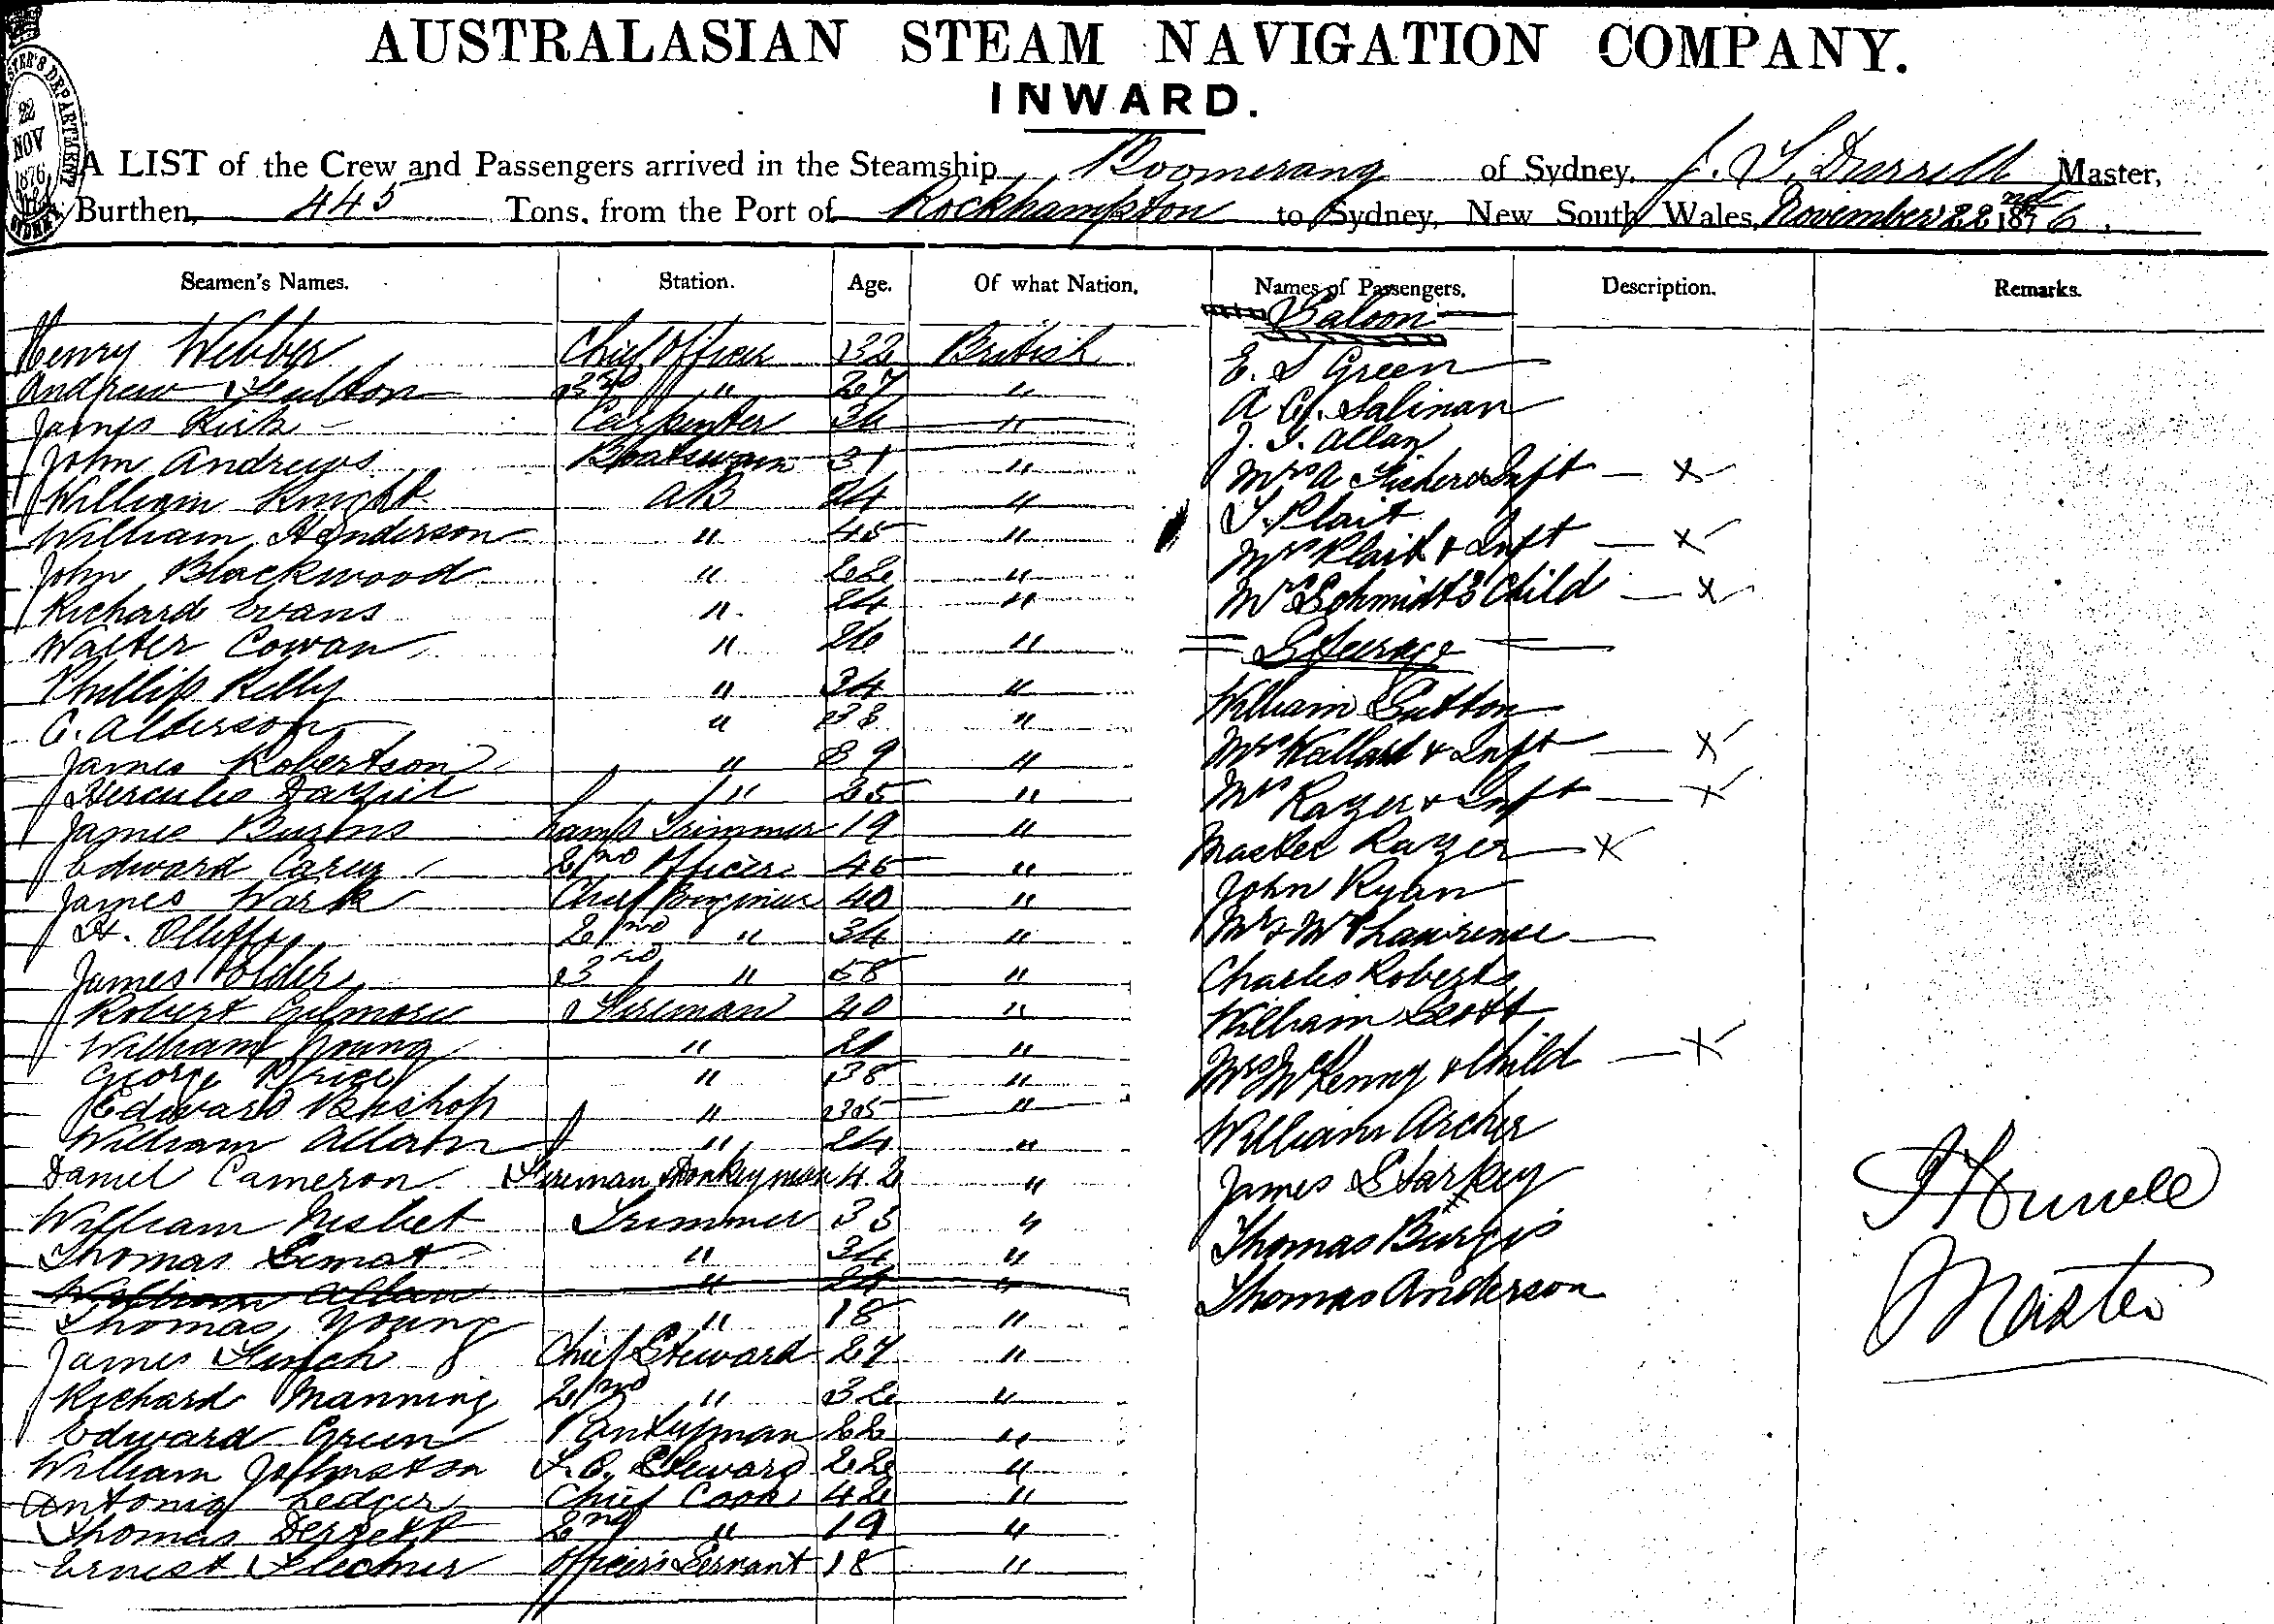 AUSTRALASIAN STEAM NAVIGATION COMPANY.
INWARD.
22
NOV
1876
A LIST of the Crew and Passengers arrived in the Steamship Boomerang of Sydney, Master,
Burthen, 445 Tons, from the Port of Rockhampton to Sydney, New South Wales, November 22nd 1876.
Seamen's Names. Station. Age. Of what Nation. Names of Passengers. Description. Remarks.
Saloon
Henry Webber Chief Officer 32 British E. S Green
Andrew Fulton " 27 " A Salinan
James Kirk Carpenter "
J. Allan
John Andrews Boatswain 31 " Mrs A & Inft — x
William Knight AB 24 "
William Henderson " 45 " Mrs Plait & Inft — x
John Blackwood " 22 "
Richard Evans " 24 " Schmidt 3 Child — x
Walter Cowan " 26 " Steerage
Phillip Kelly " 34 " William Sutton
C. Alderson " 38 "
James Robertson " 39 " Mrs & Inft — x
Hercules Dalziel " 25 " Mrs Razer & Inft — x
James Burns Lamp Trimmer 19 " Master Razer — x
Edward Carey 2nd Officer 45 " John Ryan
James Wark Chief Engineer 40 "
H. 2nd " 34 " Mr & Mrs Lawrence
James Polder 3rd " 58 " Charles Roberts
Robert Gilmore Fireman 40 " William Scott
William Young " 21 " Mrs McKenny & Child — x
George Price " 38 "
Edward Bishop " 35 " William Archer
William Allan " 24 "
Daniel Cameron Fireman & Donkeyman 42 " James Starkey
William Nisbet Trimmer 33 " Thomas Burgis
Thomas " 34 " Thomas Anderson
William Allan " 24 "
Thomas Young " 18 " Master
James Chief Steward 27 "
Richard Manning 2nd " 32 "
Edward Green Pantryman 22 "
William Johnston Steward 22 "
Antonio Ledger Chief Cook 42 "
Thomas 2nd " 19 "
Ernest Officers Servant 18 "